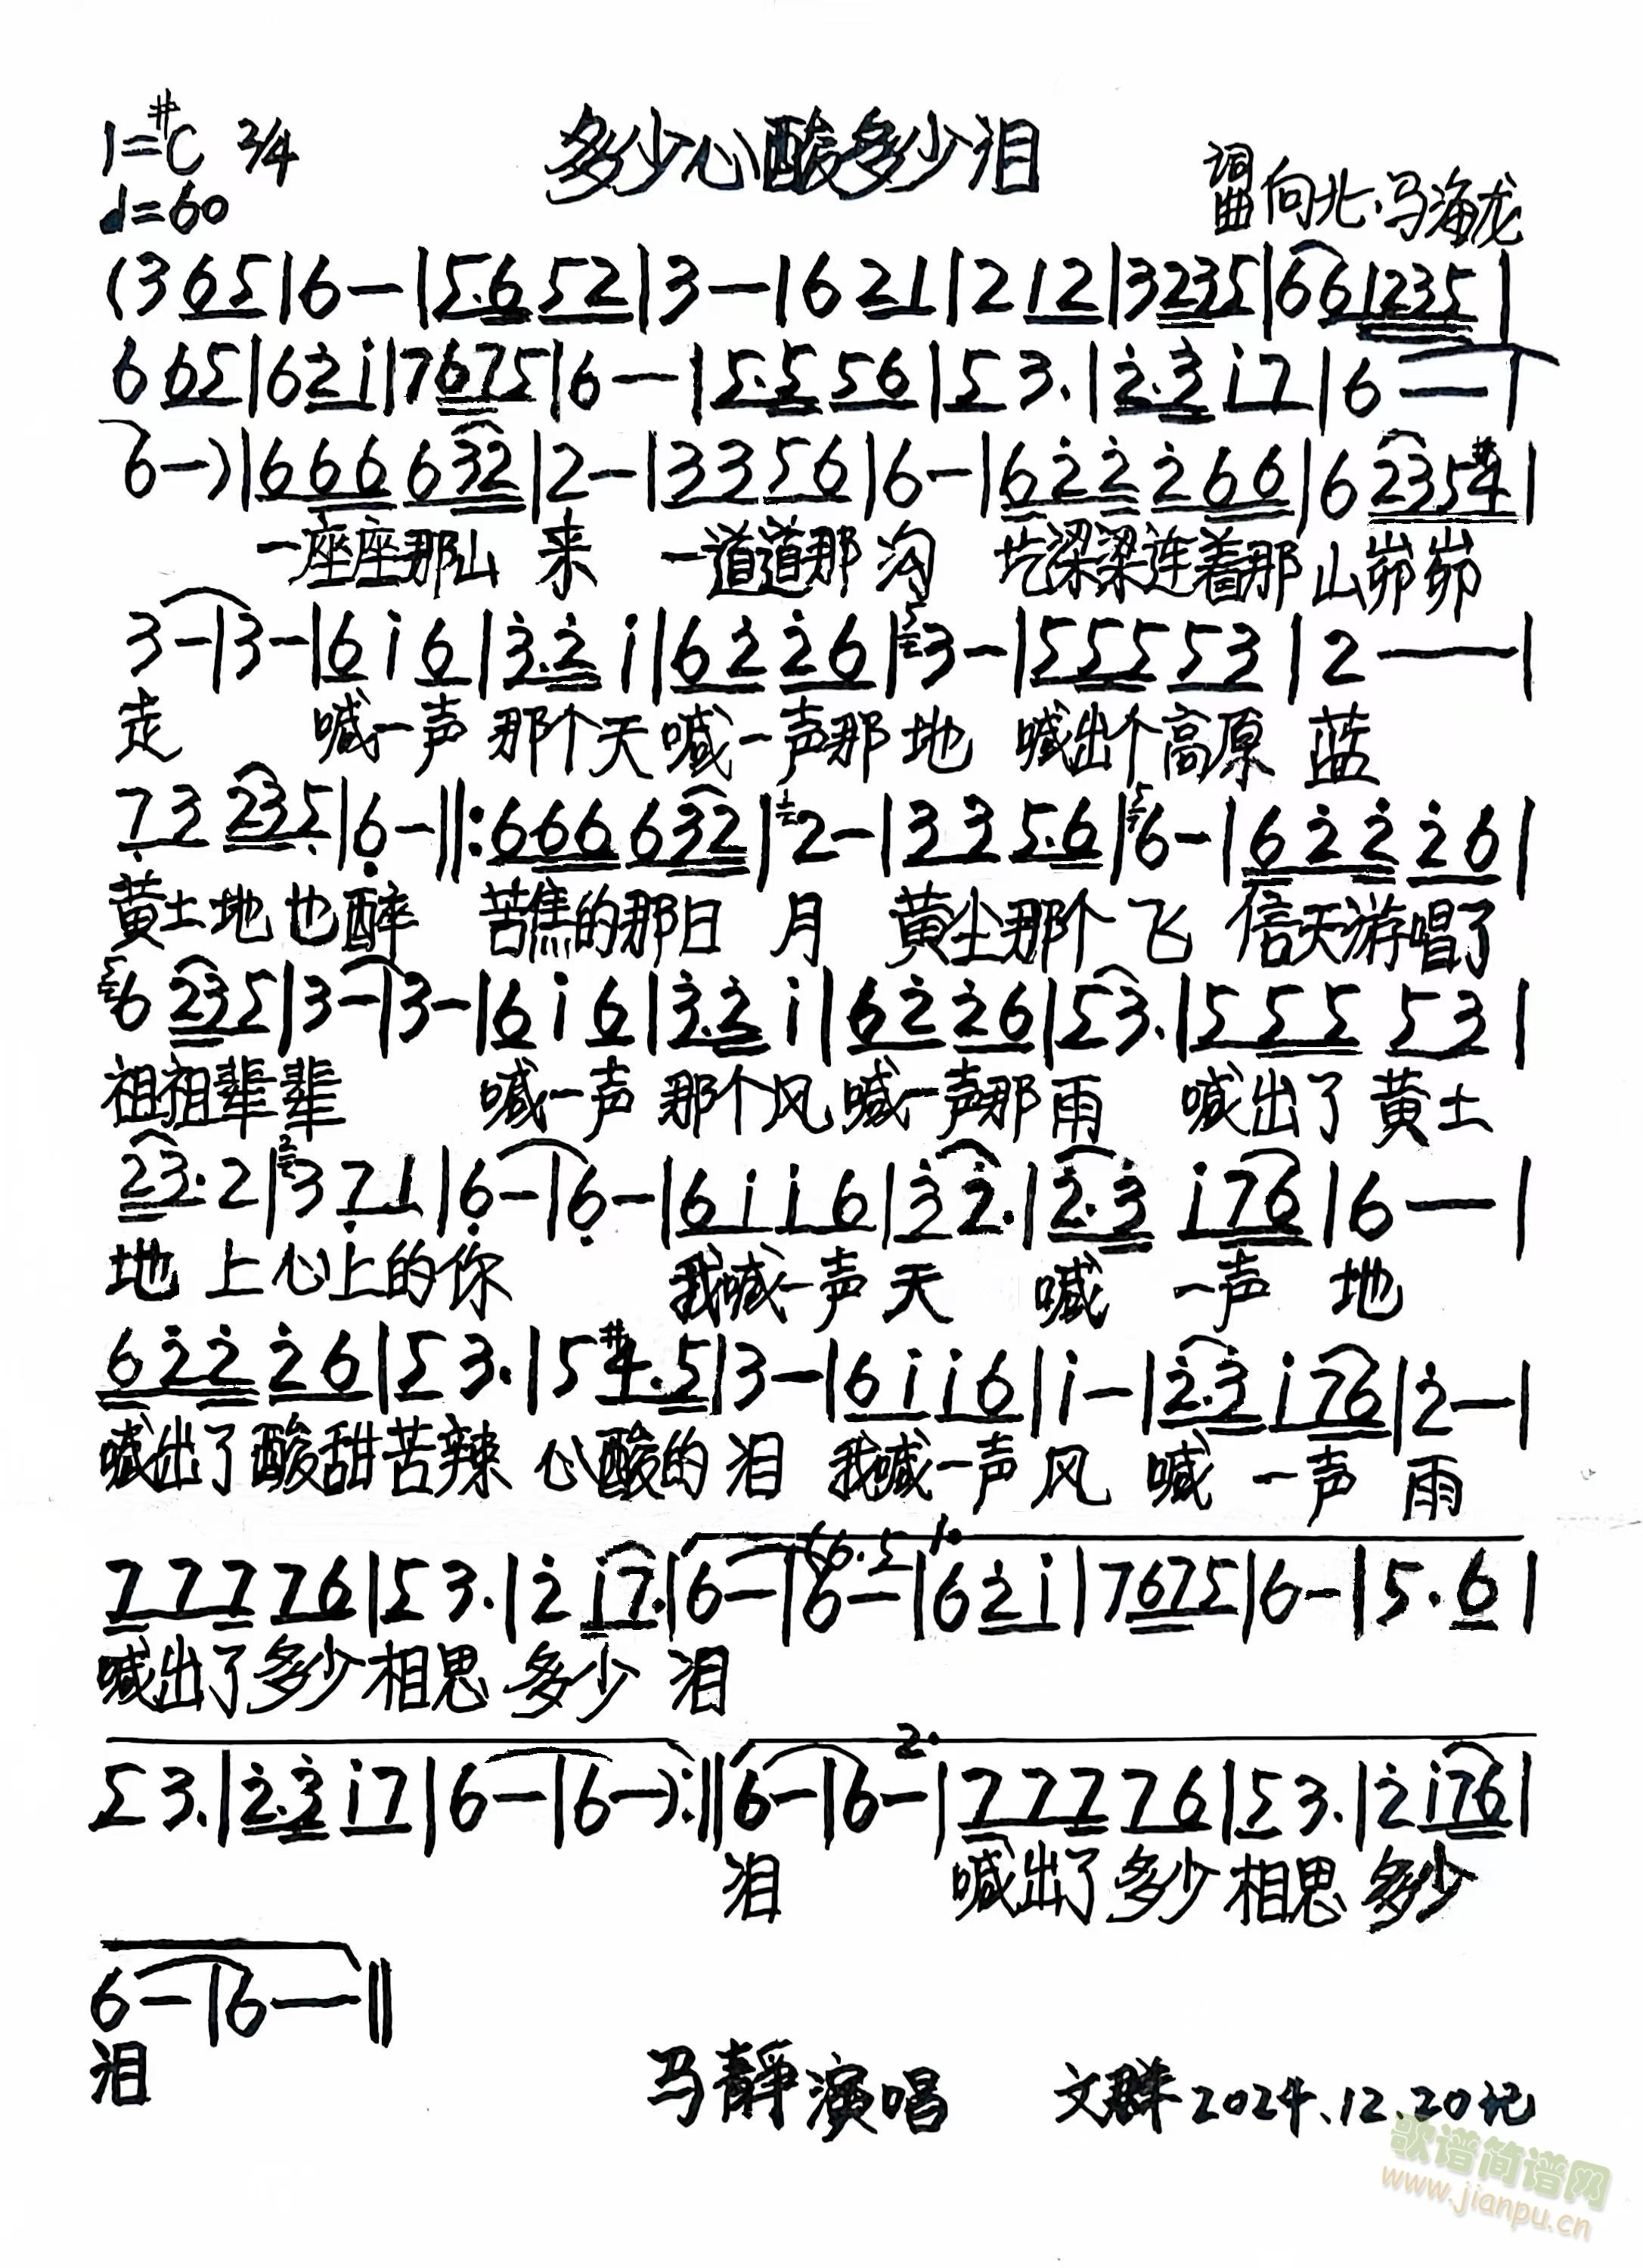 1=#C 2/4
多少心酸多少泪
♩=60
词曲 向北、马海龙
(3 6 5|6 —|5.6 5 2|3 —|6 2 1|2 1 2|3 2 3 5|6 6 1 2 3 5|
6 6 5|6 2̇ 1̇|7 6 7 5|6 —|5.5 5 6|5 3.|2̇.3̇ 1̇ 7|6 —|
6 —)|6 6 6 6 3 2|2 —|3 3 5 6|6 —|6 2̇ 2̇ 2̇ 6 6|6 2 3 5 #4|
一座座那山 来 一道道那 沟 圪梁梁连着那 山峁峁
3 —|3 —|6 1̇ 6|3̇.2̇ 1̇|6 2̇ 2̇ 6|5 3 —|5 5 5 5 3|2 —|
走 喊一声 那个天 喊一声那 地 喊出个高原 蓝
7̣ 2 2 3 5̣|6̣ —‖:6 6 6 6 3 2|1 2 —|3 3 5.6|5 6 —|6 2̇ 2̇ 2̇ 6|
黄土地也醉 苦焦的那日 月 黄尘那个 飞 信天游唱了
5 6 2 3 5|3 —|3 —|6 1̇ 6|3̇.2̇ 1̇|6 2̇ 2̇ 6|5 3.|5 5 5 5 3|
祖祖辈辈 喊一声 那个风 喊一声那 雨 喊出了 黄土
2 3. 2|2 3 7̣ 1|6̣ —|6̣ —|6 1̇ 1̇ 6|3̇ 2̇.|2̇.3̇ 1̇ 7 6|6 —|
地 上 心上的你 我喊一声 天 喊 一声 地
6 2̇ 2̇ 2̇ 6|5 3.|5 #4.5|3 —|6 1̇ 1̇ 6|1̇ —|2̇.3̇ 1̇ 7 6|2̇ —|
喊出了酸甜苦辣 心酸的 泪 我喊一声 风 喊 一声 雨
(6.5 1.
7 7 7 7 6|5 3.|2̇ 1̇ 7.|6 —|6 —|6 2̇ 1̇|7 6 7 5|6 —|5. 6|
喊出了多少相思 多少 泪
2.
5 3.|2̇.3̇ 1̇ 7|6 —|6 —):‖6 —|6 —|7 7 7 7 6|5 3.|2̇ 1̇ 7 6|
泪 喊出了多少相思 多少
6 —|6 —‖
泪
马静演唱 文群2024.12.20记
歌谱简谱网
www.jianpu.cn